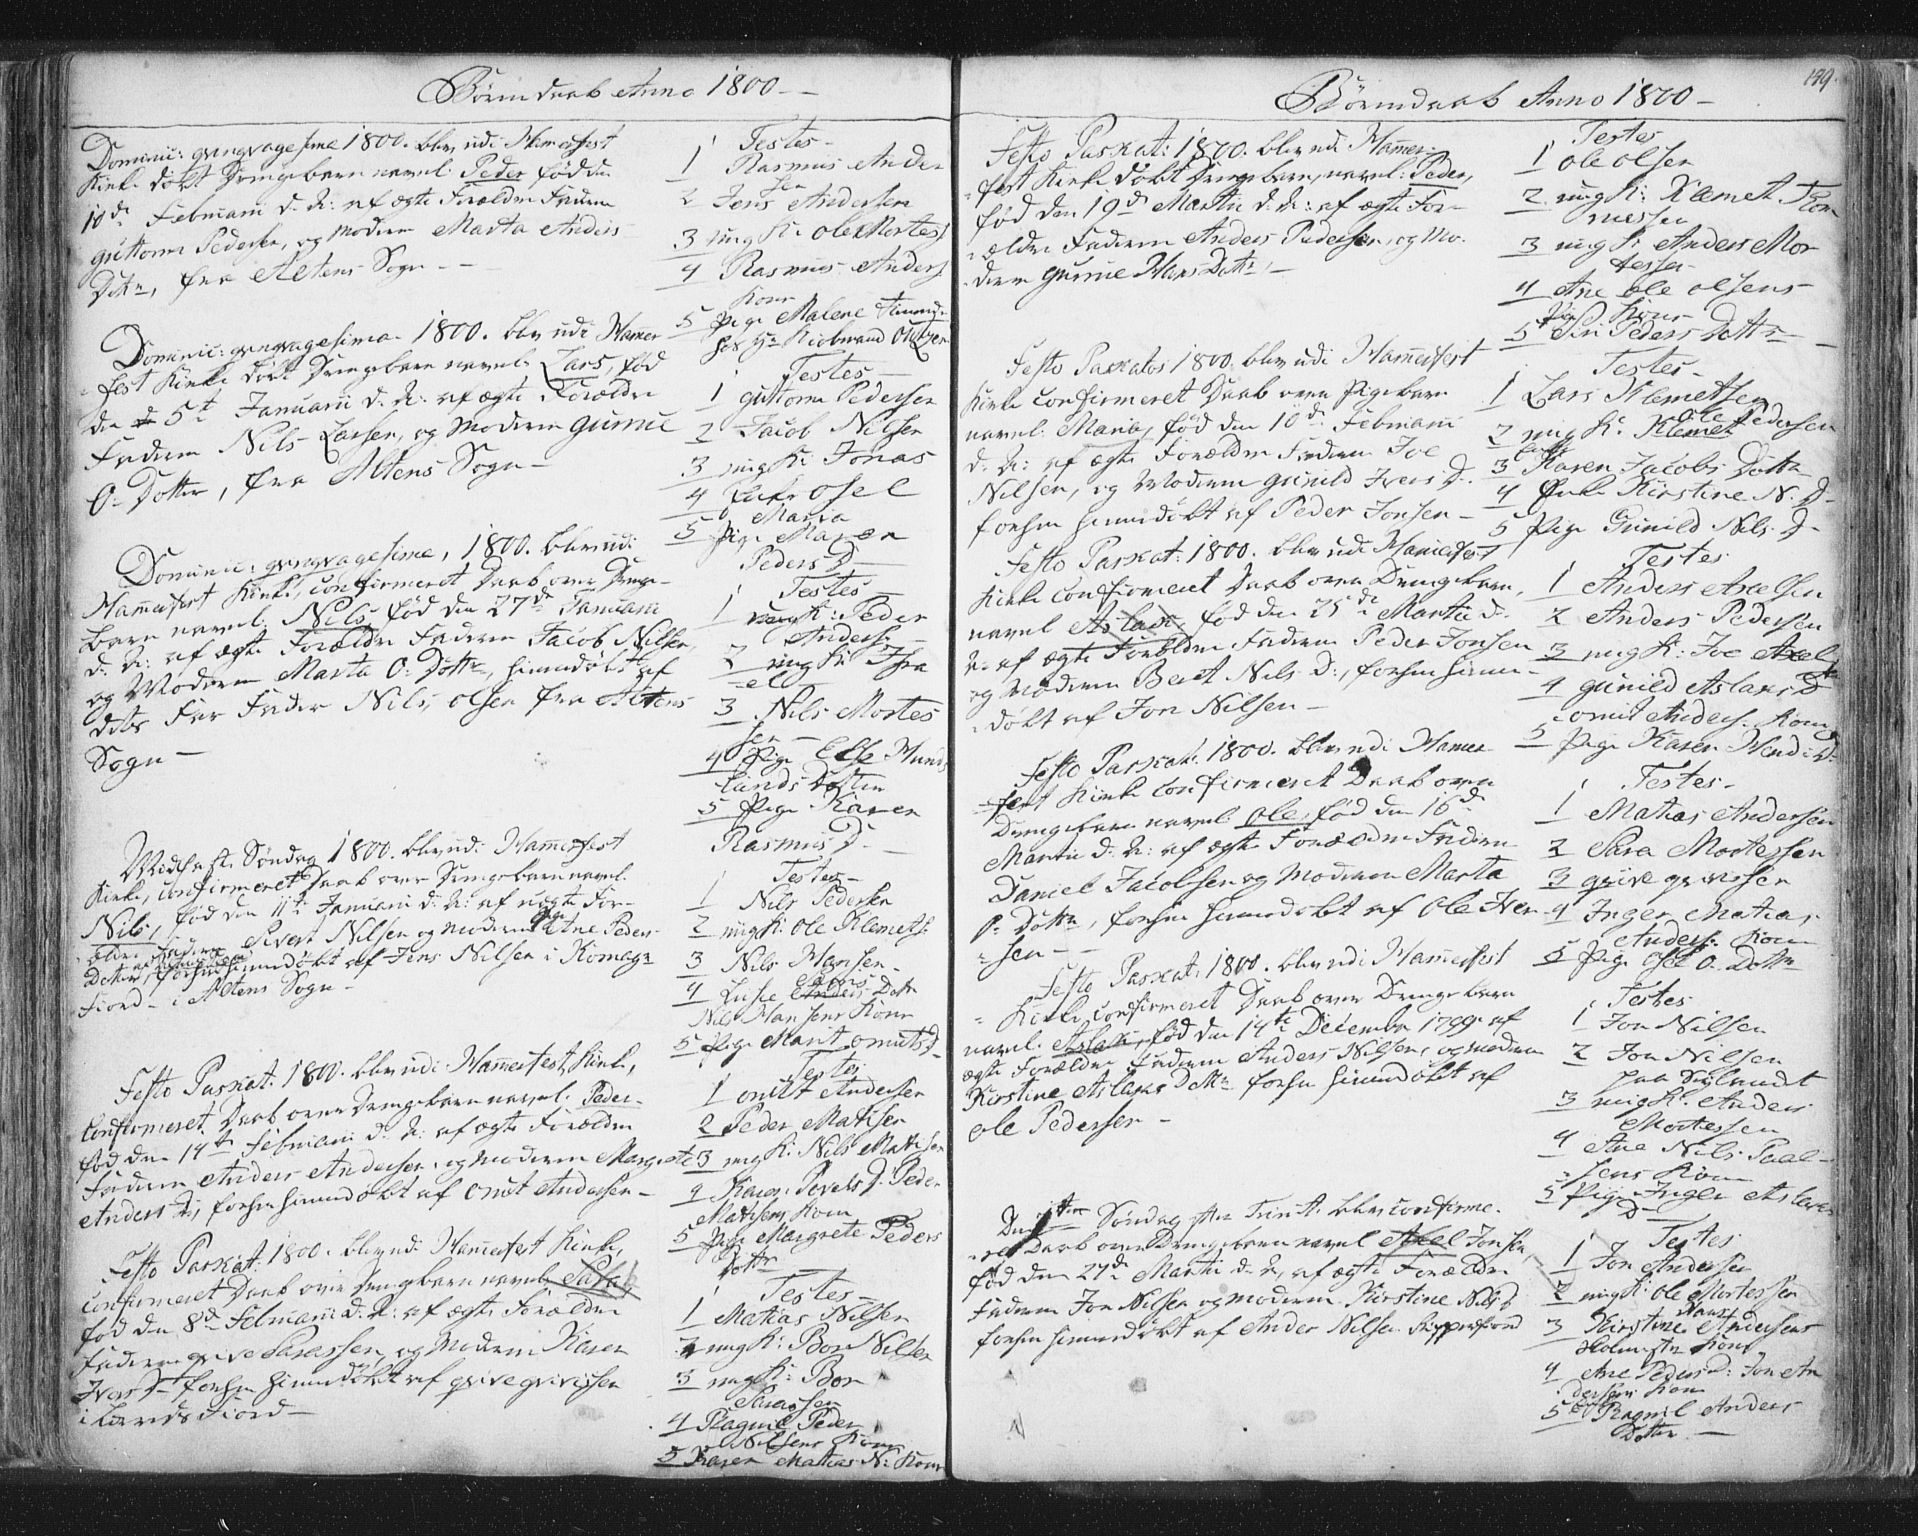 Børnedaab Anno 1800 -
Dominic: qvinqvagesima 1800. blev udi Hamerfest
Kirke døbt Drengebarn navnl. Peder fød den
10de Februarii d. A: af ægte Forældre Faderen
Guttorm Pedersen, og Moderen Marta Anders
Dottr, fra Altens Sogn -
Testes -
1 Rasmus Ander
sen
2 Jens Andersen
3 ung K: Ole Mortes
4 Rasmus Anders
Kone
5 Pige Malene Fleming
hos Hr Kiobmand
Dominic: qvinqvagesima 1800. blev udi Hamer
fest Kirke døbt Drengebarn navnl. Lars, fød
den 5t Januarii d. A: af ægte Forældre
Faderen Nils Larsen, og Moderen Gurine
O. Dotter, fra Altens Sogn -
Testes -
1 Guttorm Pedersen
2 Jacob Nilsen
3 ung K: Jonas
4 Enke Osel
Maria
5 Pige Maren
Peders D.
Dominic: qvinqvagesima, 1800. blev udi
Hamerfest Kirke, confirmeret Daab over Drenge-
barn navnl. Nils, fød den 27de Januarii
d. A: af ægte Forældre Faderen Jacob Nilsen,
og Moderen Marta O: Dottr, hiemdøbt af
dets Far Fader Nils Olsen fra Altens
Sogn -
Testes -
1 ung K: Peder
Anders.
2 ung K: Isra
el
3 Nils Mortes
sen -
4 Pige Else Hunds
lunds Dotter
5 Pige Karen
Rasmus D. -
Midfaste Søndag 1800. blev udi Hammerfest
Kirke, confirmeret Daab over Drengebarn navnl.
Nils, fød den 11te Januarii d: A: af uægte For-
ældre Faderen Sivert Nilsen og Moderen Pige Ane Peders
Dotter, forhen hiemdøbt af Jens Nilsen i Komag
Fiord - i Altens Sogn -
Testes -
1 Nils Pedersen
2 ung K: Ole Klemets.
3 Nils Hansen -
4 Lusie Dottr
Nils Hansens Kone
5 Pige Marit Omuts D -
Festo Paskat: 1800. blev udi Hamerfest Kirke,
Confirmeret Daab over Drengebarn navnl. Peder.
fød den 14te Februarii d: A: af ægte Forældre
Faderen Anders Andersen, og Moderen Margrete
Anders D, forhen hiemdøbt af Omut Andersen -
Testes
1 Omut Andersen
2 Peder Matisen
3 ung K: Nils Matisen
4 Karen Povels D. Peder
Matisens Kone
5 Pige Margrete Peders
Dottr
Festo Paskat: 1800. blev udi Hamerfest Kirke,
confirmeret Daab over Drengebarn navnl. Sara
fød den 8de Februarii d. A: af ægte Forældre
Faderen Grive Sarassen, og Moderen Karen
Ivers D. forhen hiemdøbt af Grive Grivissen
i Fiord -
Testes -
1 Matias Nilsen
2 ung K: Bon Nilsen
3 ung K: Bon
Sarassen
4 Ragnil Peder
Nilsens Kone
5 Karen Matias N: Kone
Børnedaab Anno 1800 -
149.
Festo Paskat: 1800. blev udi Hamer-
fest Kirke døbt Drengebarn, navnl: Peder,
fød den 19de Martii d. A: af ægte For-
ældre Faderen Anders Pedersen, og Mo-
deren Gurine Hans Dottr -
Testes
1 Ole Olsen
2 ung K: Klemet Tom
messen
3 ung K Anders Mor
tessen
4 Ane Ole Olsens
Kone
5 Siri Peders Dottr -
Festo Paskatos 1800. blev udi Hamerfest
Kirke confirmeret Daab over Pigebarn
navnl. Maria, fød den 10de Februarii
d. A: af ægte Forældre Faderen Joe
Nilsen, og Moderen Gunild Ivers D.
forhen hiemdøbt af Peder Jonsen -
Testes -
1 Lars Klemetsen
2 ung K. Ole Pedersen
3 Karen Jacobs Dottr
4 Enke Kirstine N. D -
5 Pige Gunild Nils D -
Festo Paskat: 1800. blev udi Hamerfest
Kirke confirmeret Daab over Drengebarn,
navnl Aslak, fød den 25de Martii d.
A: af ægte Forældre Faderen Peder Jonsen
og Moderen Beret Nils D:, forhen hiem-
døbt af Jon Nilsen -
Testes
1 Anders Axelsen
2 Anders Pedersen
3 ung K: Joe Axels
4 Gunild Aslaks D
Omut Anders. Kone
5 Pige Karen Hend: D:
Festo Paskat: 1800. blev udi Hamer
fest Kirke confirmeret Daab over
Drengebarn navnl. Ole, fød den 16de
Martii d. A: af ægte Forældre Faderen
Daniel Jacobsen og Moderen Marta
P. Dottr, forhen hiemdøbt af Ole Iver
sen -
Testes -
1 Matias Andersen
2 Sara Mortessen
3 Grive Grivissen
4 Inger Matias
Anders. Kone
5 Pige Osel O. Dottr
Festo Paskat: 1800. blev udi Hamerfest
Kirke confirmeret Daab over Drengebarn
navnl. Aslak, fød den 14te Decembr 1799 af
ægte Forældre Faderen Anders Nilsen, og Moderen
Kirstine Aslaks Dottr forhen hiemdøbt af
Ole Pedersen -
Testes
1 Jon Nilsen
2 Jon Nilsen
paa
3 ung K. Anders
Mortessen
4 Ane Nils Paal-
sens Kone
5 Pige Inger Aslaks
D -
Den Søndag efter Trinit. blev confirme-
ret Daab over Drengebarn navnl Axel Jonsen,
fød den 27de Martii d. A, af ægte Forældre
Faderen Jon Nilsen og Moderen Kirstine Nils D
forhen hiemdøbt af Ander Nilsen Repperfiord
Testes
1 Jon Andersen
2 ung K: Ole Mortessen
3 Kirstine Hans Andersens
Kone
4 Ane Peders D: Jon An
dersens Kone
5 Ragnil Anders
Dotter -